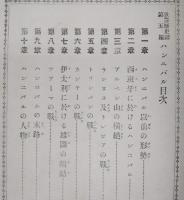 ハンニバル目次
第一章 ハンニバル以前の形勢
第二章 西班牙に於けるハンニバル
第三章 アルペン山の横絶
第四章 及トレビアの戦
第五章 の戦
第六章 カンナーの戦
第七章 伊太利に於ける
第八章 の戦
第九章 ハンニバルの末路
第十章 ハンニバルの人物